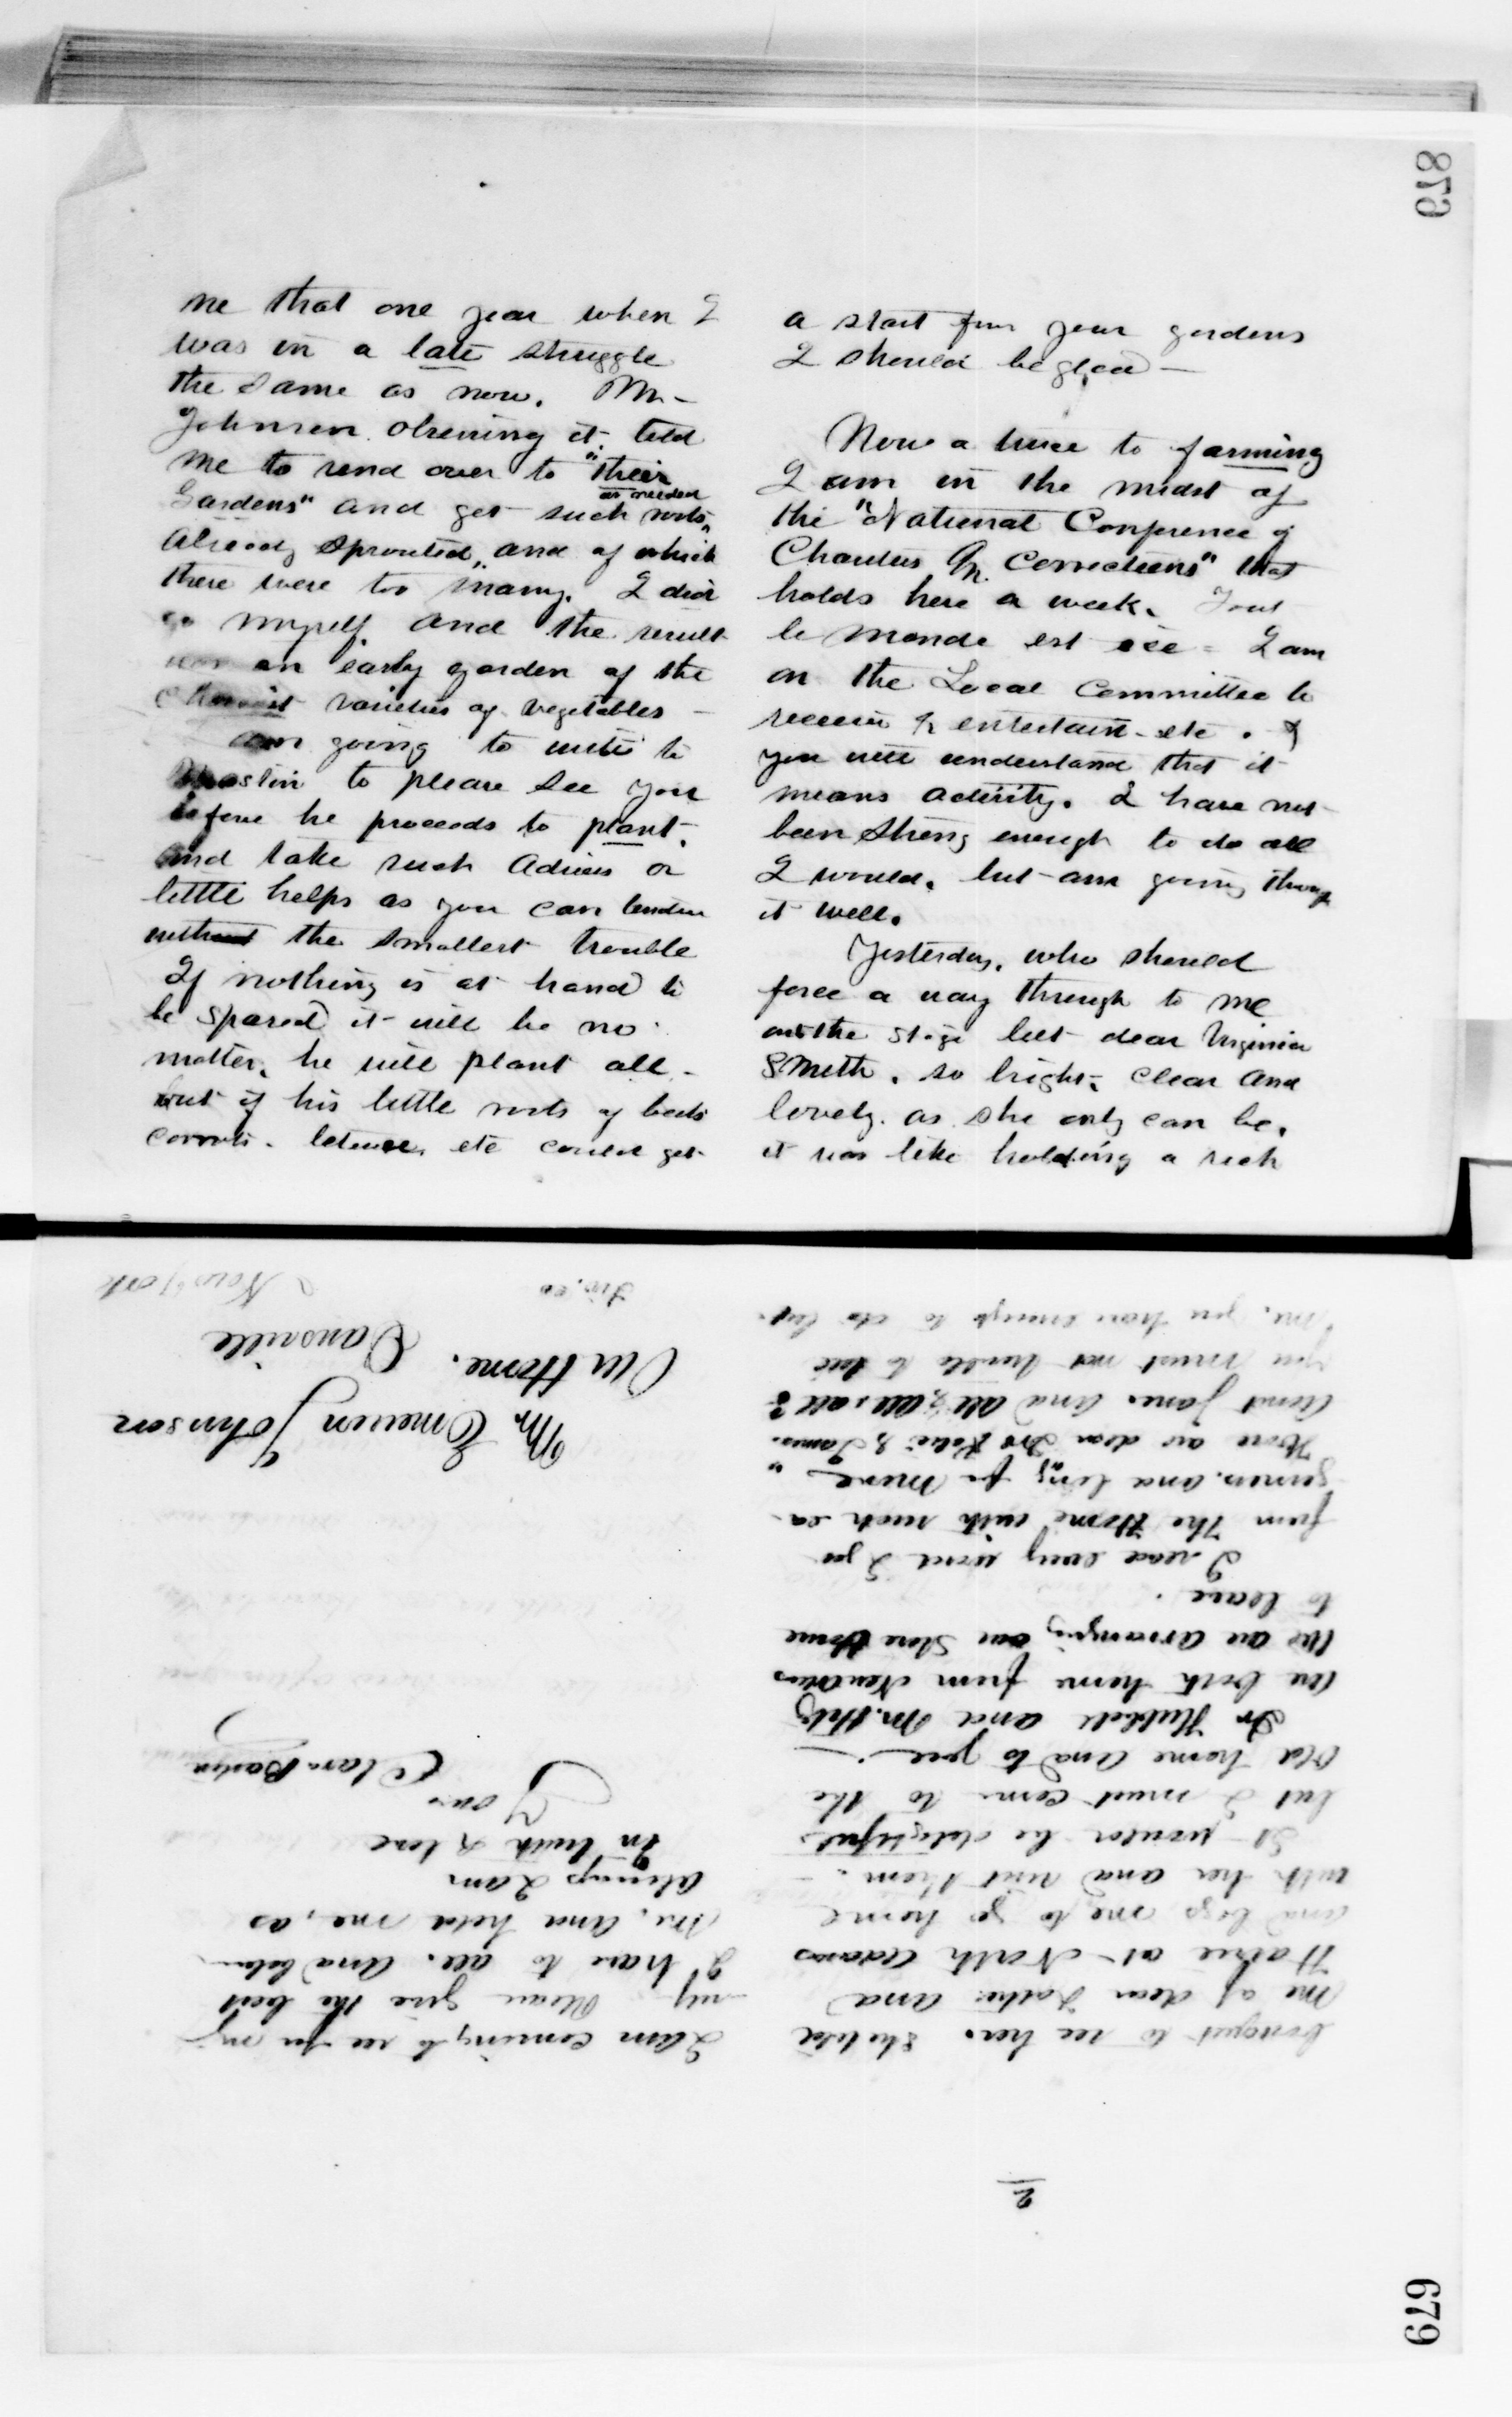 678
me that one year when I
was in a late struggle
the same as now. Mr
Johnson observing it, told
me to send over to "their
Gardens" and get such roots, as needed
already sprouted, and of which
there were too many. I did
so myself and the result
was an early garden of the
choicest varieties of vegetables –
am going to write to
to please see you
before he proceeds to plant,
and take such advice or
little helps as you can render
without the smallest trouble
If nothing is at hand to
be spared it will be no
matter, he will plant all –
but if his little roots of beets
carrots – letuce, etc could get
a start from your gardens
I should be glad –
Now a truce to farming
I am in the midst of
the "National Conference of
Charities & Corrections" that
holds here a week. Tout
le monde est ici = I am
on the Local Committee to
receive & entertain – etc. &
you will understand that it
means activity. I have not
been strong enough to do all
I would, but am going through
it well.
Yesterday, who should
force a way through to me
on the stage but dear Virginia
Smith, so bright, clear and
lovely as she only can be,
it was like holding a rich
679
2
bouquet to see her. She told
me of dear Father and
Hattie at North Adams
and begs me to go home
with her and visit them. –
It would be delightful
but I must come to the
old home and to you –
Dr Hubbell and Mr.
are both home from
We are arranging our Store House
to leave.
I read every word I get
from the Home with such
and long for "more"
How are dear Drs Kate & James.
Aunt Jane and all, all, all?
You must not trouble to tell
me, you have enough to do but
I am coming to see for my
self – Please give the best
I have to all. And believe
me, and hold me, as,
always I am
In truth & love
Yours
Clara Barton
Mr. Emerson Johnson
Our Home. Dansville
Liv. co
New York